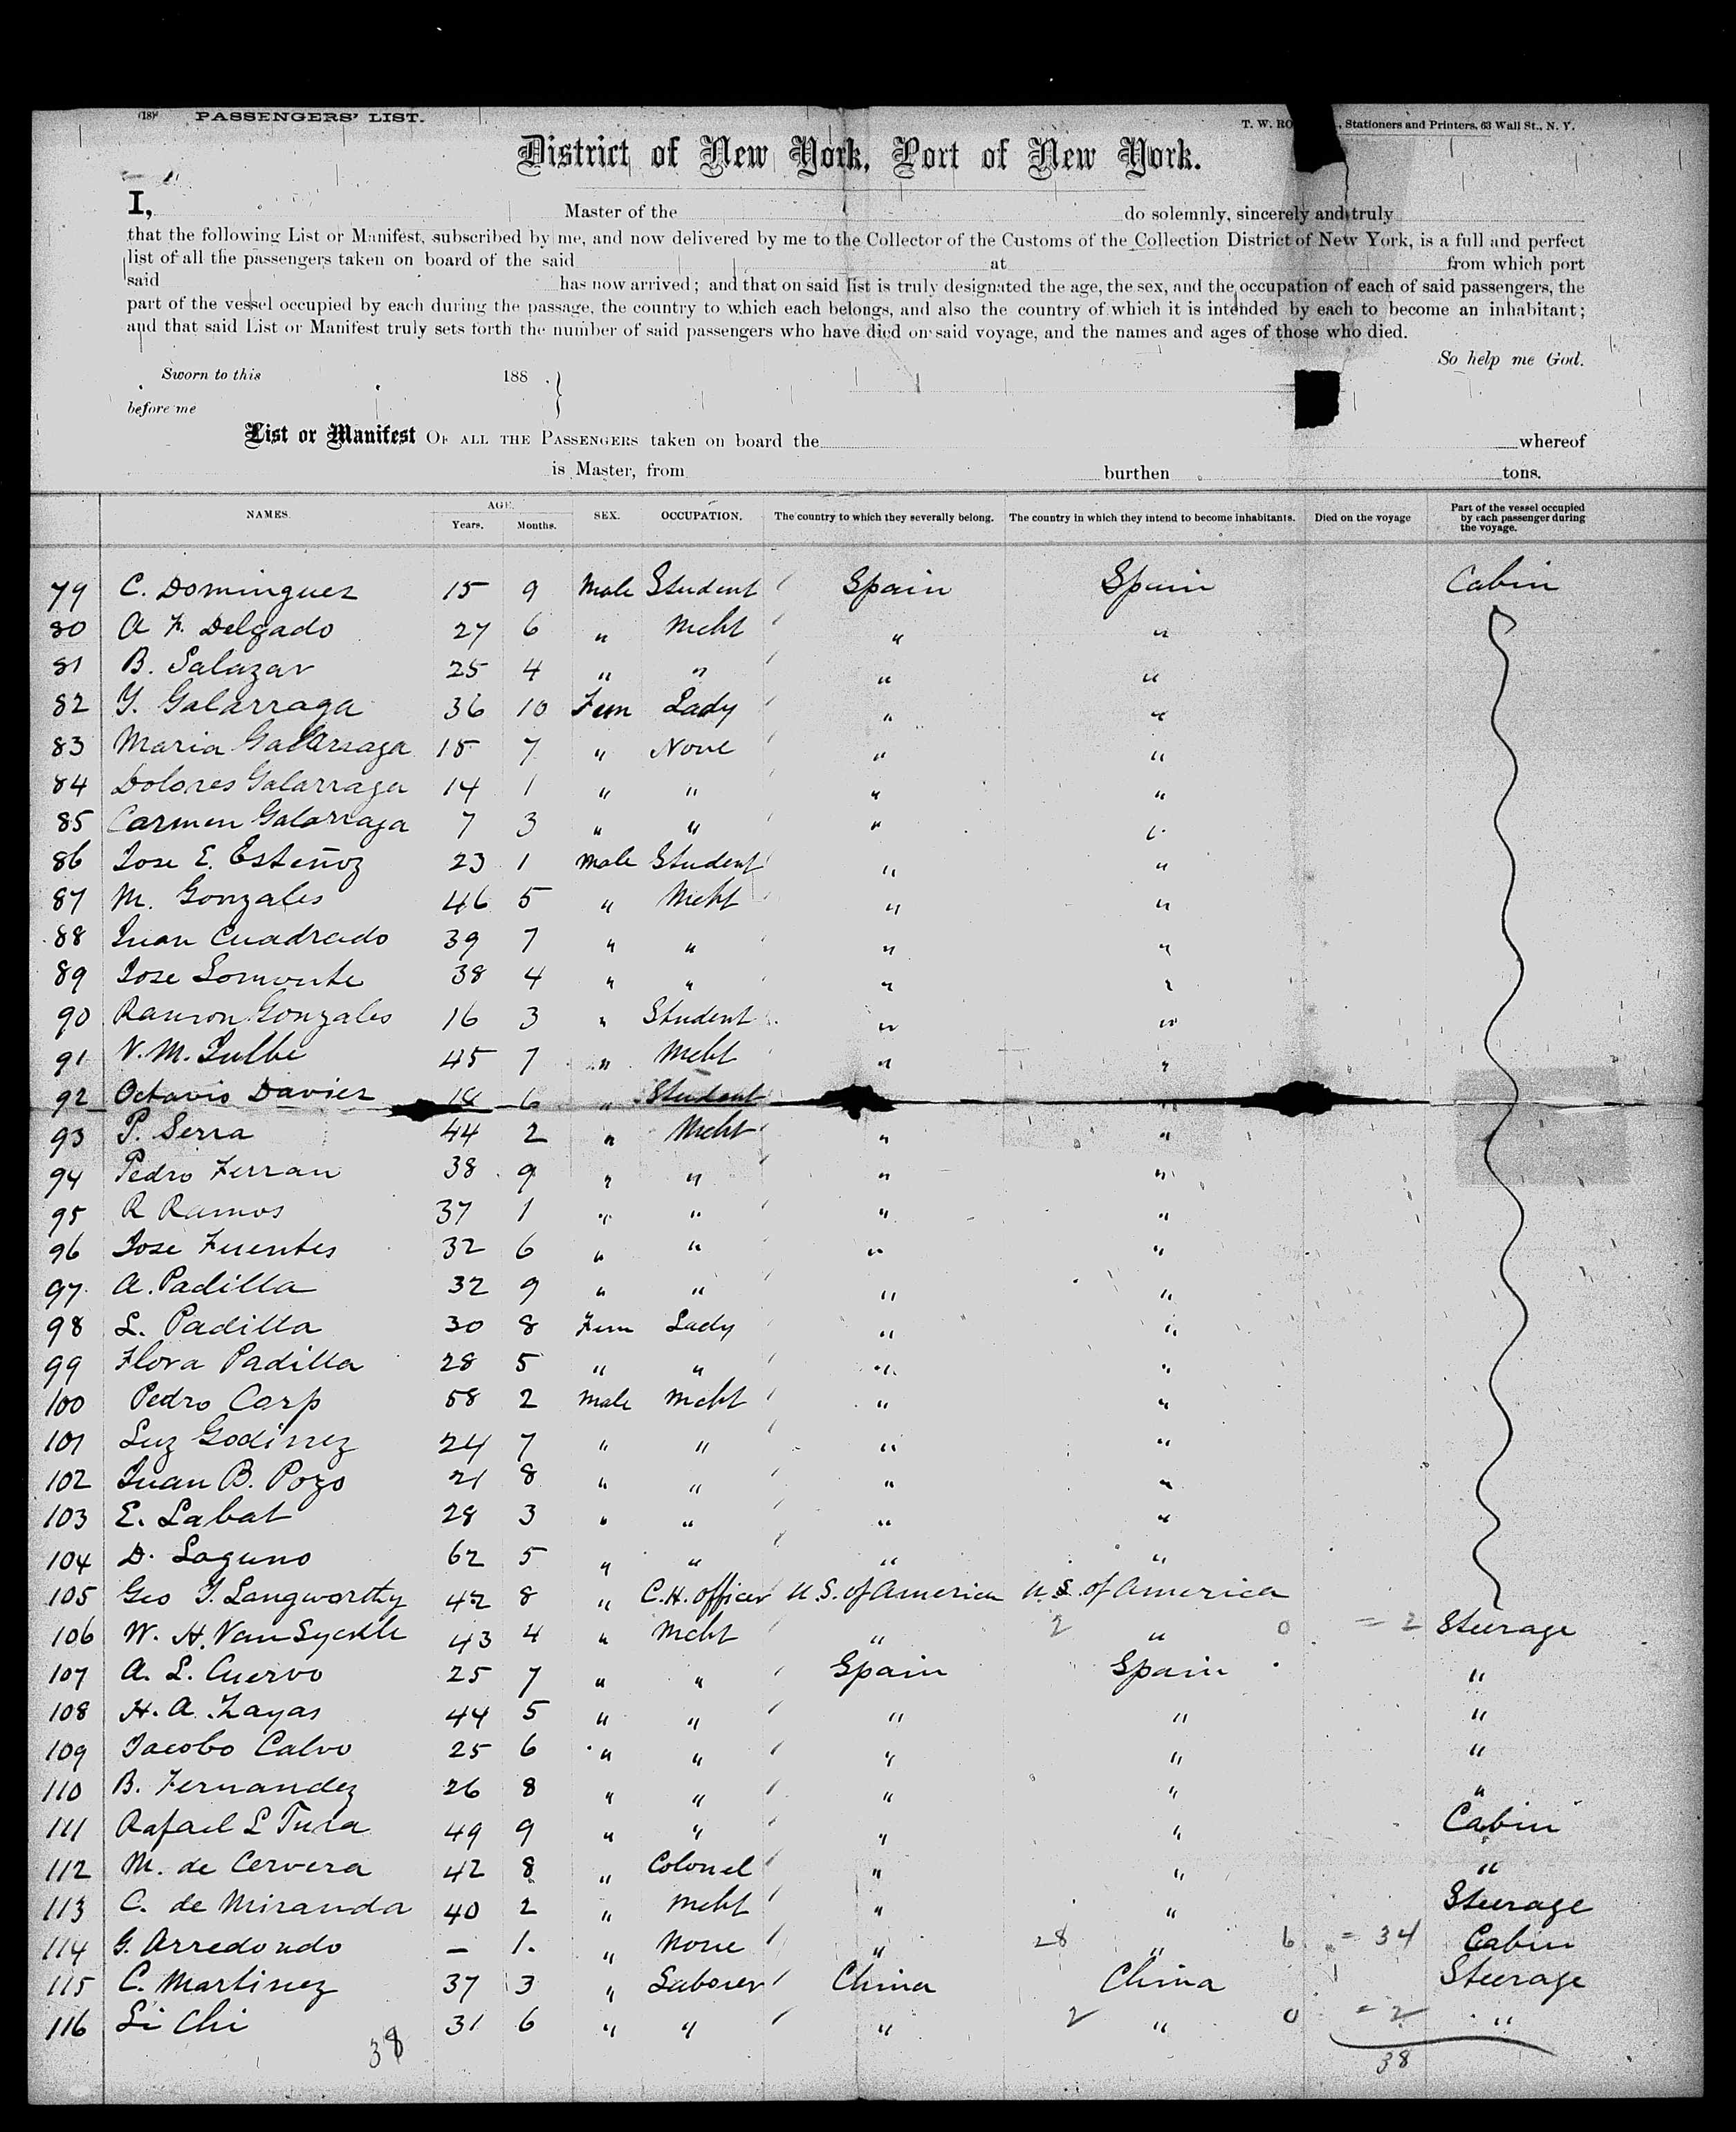 (18) PASSENGERS' LIST.
T. W. , Stationers and Printers, 63 Wall St., N. Y.
District of New York, Port of New York.
I, Master of the do solemnly, sincerely and truly
that the following List or Manifest, subscribed by me, and now delivered by me to the Collector of the Customs of the Collection District of New York, is a full and perfect
list of all the passengers taken on board of the said at from which port
said has now arrived; and that on said list is truly designated the age, the sex, and the occupation of each of said passengers, the
part of the vessel occupied by each during the passage, the country to which each belongs, and also the country of which it is intended by each to become an inhabitant;
and that said List or Manifest truly sets forth the number of said passengers who have died on said voyage, and the names and ages of those who died.
So help me God.
Sworn to this 188 . }
before me
List or Manifest OF ALL THE PASSENGERS taken on board the whereof
is Master, from burthen tons.
NAMES. AGE. Years. Months. SEX. OCCUPATION. The country to which they severally belong. The country in which they intend to become inhabitants. Died on the voyage Part of the vessel occupied by each passenger during the voyage.
79 C. Dominguez 15 9 Male Student Spain Spain Cabin
80 A F. Delgado 27 6 " Mcht " "
81 B. Salazar 25 4 " " " "
82 Y. Galarraga 36 10 Fem Lady " "
83 Maria Galarraga 15 7 " None " "
84 Dolores Galarraga 14 1 " " " "
85 Carmen Galarraga 7 3 " " " "
86 Jose E. Esteñoz 23 1 Male Student " "
87 M. Gonzales 46 5 " Mcht " "
88 Juan Cuadrado 39 7 " " " "
89 Jose Lomonte 38 4 " " " "
90 Ramon Gonzales 16 3 " Student " "
91 V. M. Julbe 45 7 " Mcht " "
92 Octavio Daviez 18 6 " Student "
93 P. Serra 44 2 " Mcht " "
94 Pedro Ferran 38 9 " " " "
95 R Ramos 37 1 " " " "
96 Jose Fuentes 32 6 " " " "
97 A. Padilla 32 9 " " " "
98 L. Padilla 30 8 Fem Lady " "
99 Flora Padilla 28 5 " " " "
100 Pedro Carp 58 2 Male Mcht " "
101 Luz Godinez 24 7 " " " "
102 Juan B. Pozo 21 8 " " " "
103 E. Labat 28 3 " " " "
104 D. Laguno 62 5 " " " "
105 Geo Y. Langworthy 42 8 " C.H. Officer U.S. of America U.S. of America
106 W. H. Van Syckle 43 4 " Mcht " 2 " 0 = 2 Steerage
107 A. L. Cuervo 25 7 " " Spain Spain "
108 H. A. Zayas 44 5 " " " " "
109 Jacobo Calvo 25 6 " " " " "
110 B. Fernandez 26 8 " " " " "
111 Rafael L Tura 49 9 " " " " Cabin
112 M. de Cervera 42 8 " Colonel " " "
113 C. de Miranda 40 2 " Mcht " " Steerage
114 G. Arredondo — 1. " None " 28 " 6 = 34 Cabin
115 C. Martinez 37 3 " Laborer China China Steerage
116 Li Chi 31 6 " " " 2 " 0 = 2 "
38 38